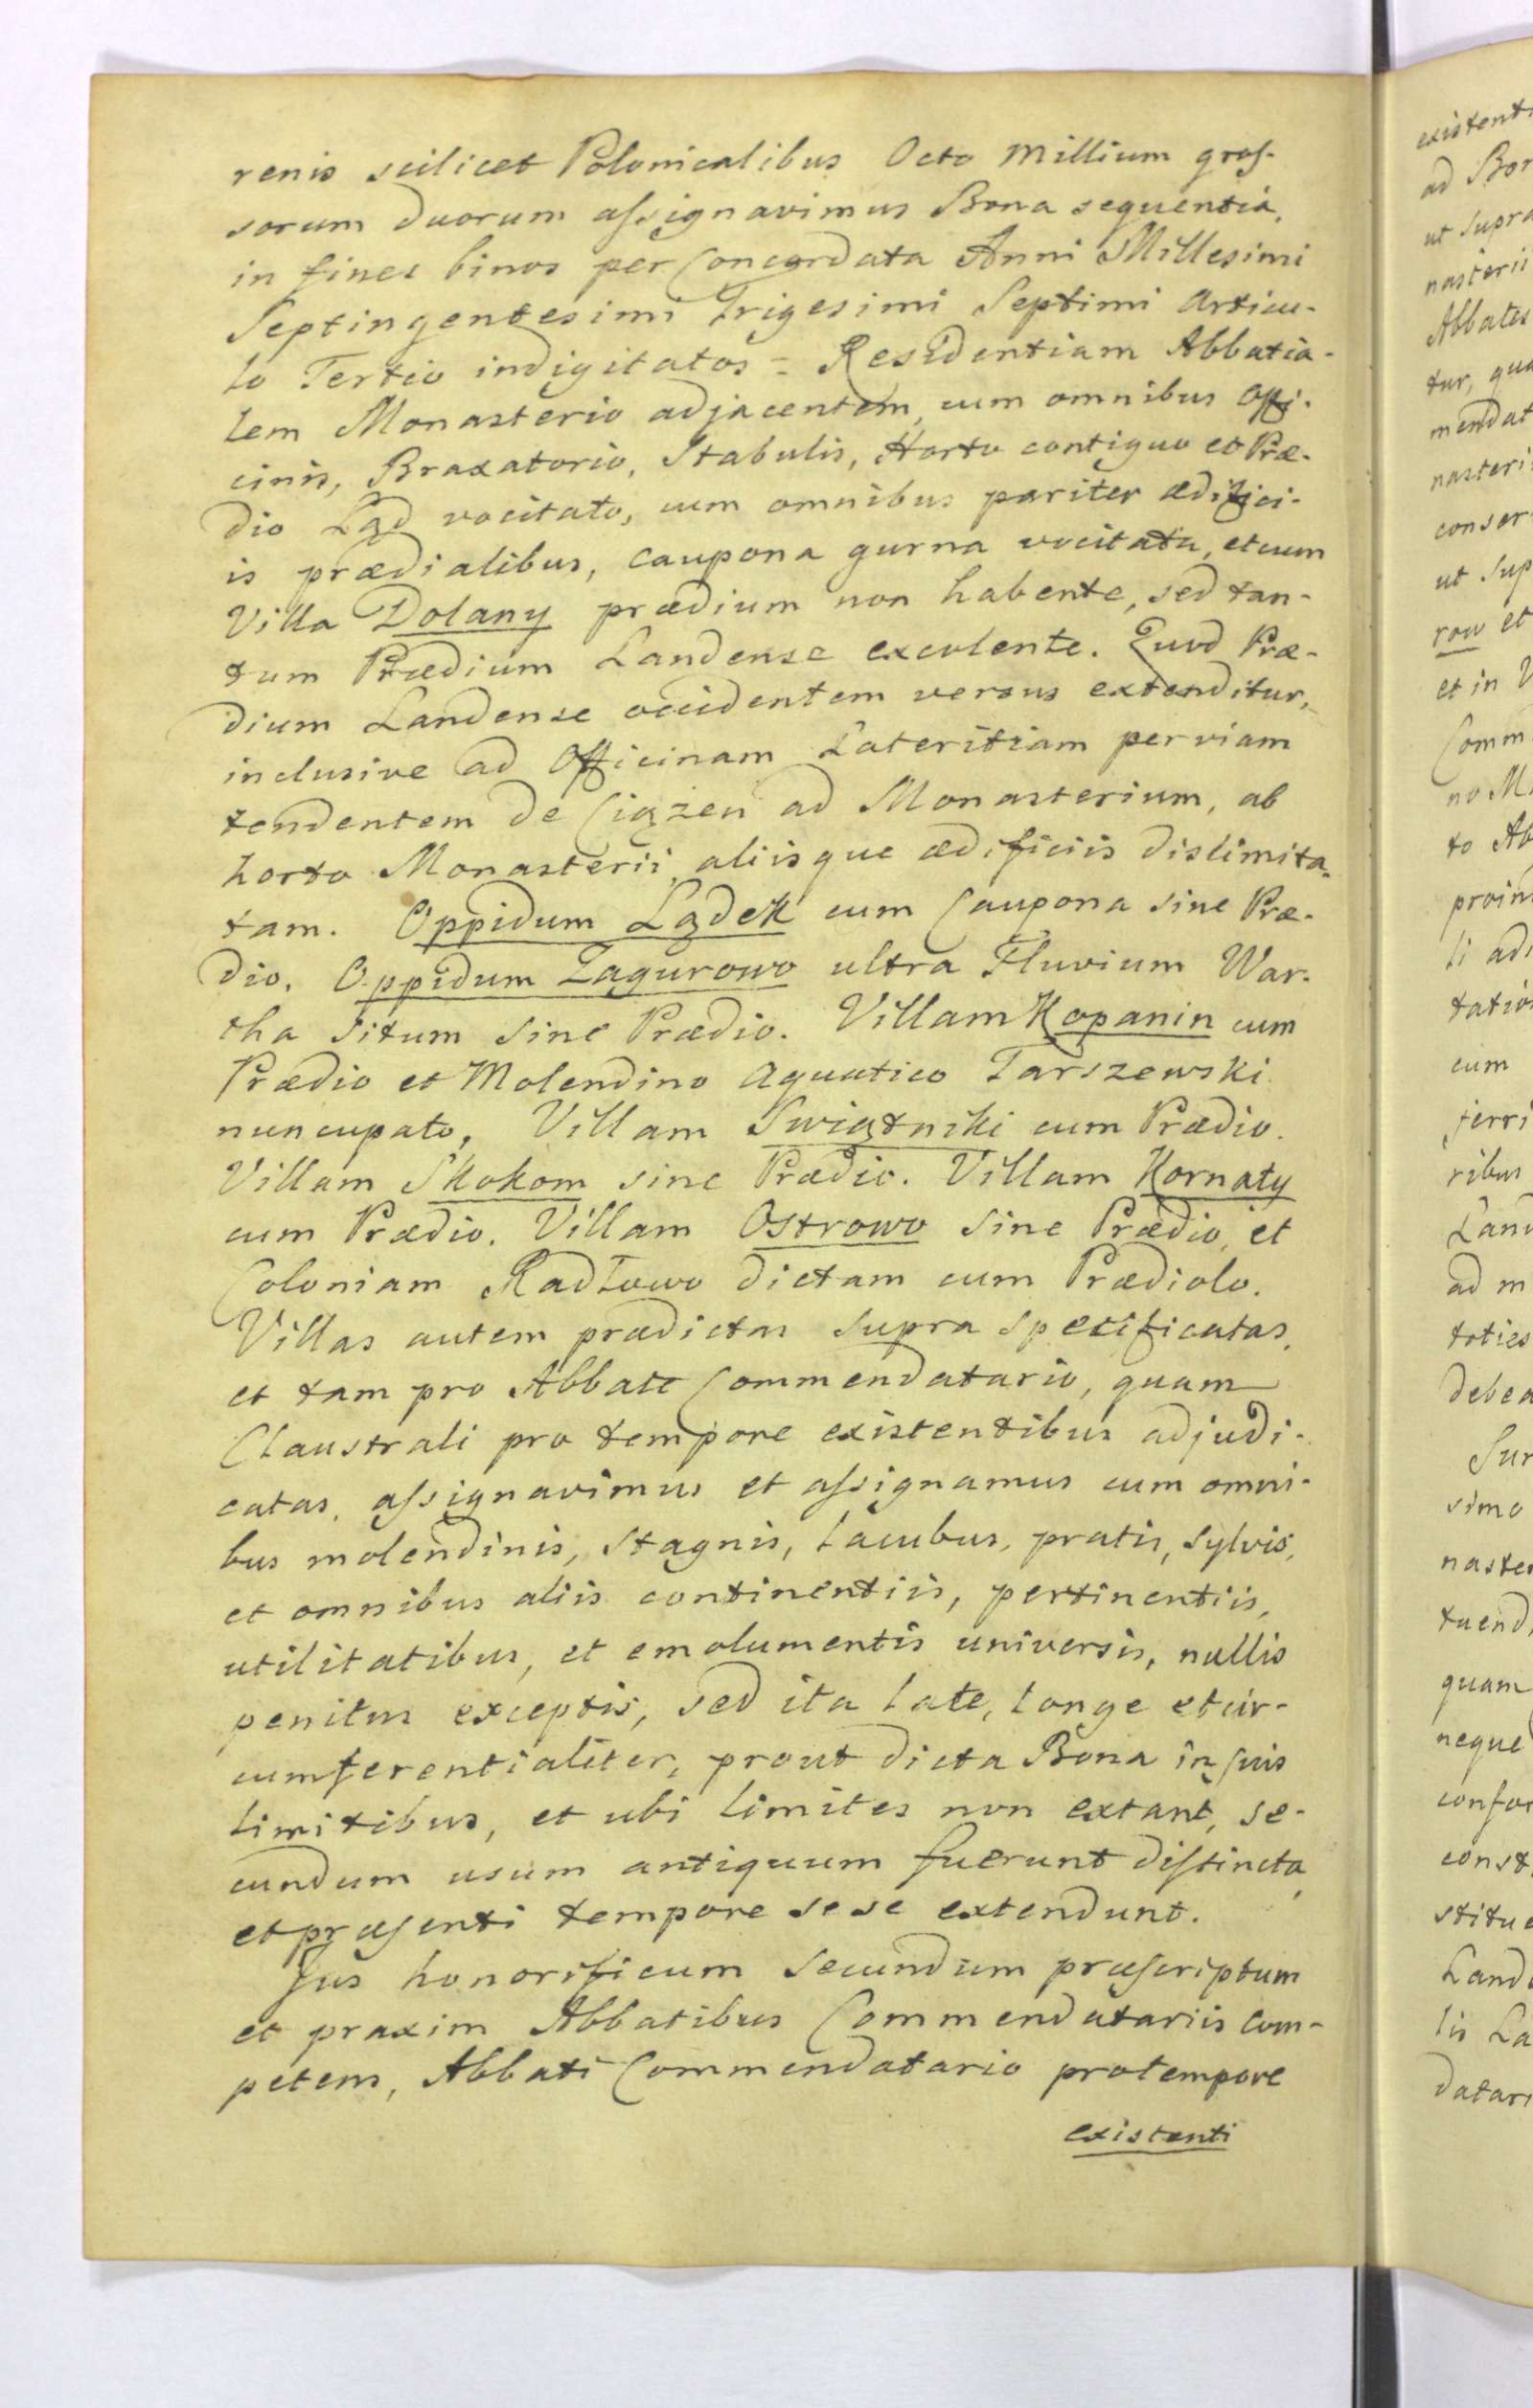 renis scilicet Polonicalibus Octo Millium gros-
sorum duorum assignavimus Bona sequentia,
in fines binos per Concordata Anni Millesimi
Septingentesimi Trigesimi Septimi Articu-
lo Tertio indigitatos = Residentiam Abbatia-
lem Monasterio adjacentem, cum omnibus Offi-
cinis, Braxatorio, Stabulis, Horto contiguo et Præ-
dio Ląd vocitato, cum omnibus pariter ædifici-
is prædialibus, caupona gurna vocitata, et cum
Villa Dolany prædium non habente, sed tan-
tum Prædium Landense excolente. Quod Præ-
dium Landense occidentem versus extenditur,
inclusive ad Officinam Lateritiam per viam
tendentem de Ciążeń ad Monasterium, ab
horto Monasterii, aliisque ædificiis dislimita-
tam. Oppidum Lądek cum Caupona sine Præ-
dio. Oppidum Zagurowo ultra Fluvium War-
tha situm sine Prædio. Villam Kopanin cum
Prædio et Molendino Aquatico Tarszewski
nuncupato, Villam Swiątniki cum Prædio.
Villam Skokom sine Prædio. Villam Kornaty
cum Prædio. Villam Ostrowo sine Prædio, et
Coloniam Radłowo dictam cum Prædiolo.
Villas autem prædictas supra specificatas,
et tam pro Abbate Commendatario, quam
Claustrali pro tempore existentibus adjudi-
catas, assignavimus et assignamus cum omni-
bus molendinis, stagnis, lacubus, pratis, sylvis,
et omnibus aliis continentiis, pertinentiis,
utilitatibus, et emolumentis universis, nullis
penitus exceptis, sed ita late, longe et cir-
cumferentialiter, prout dicta Bona in suis
limitibus, et ubi limites non extant, se-
cundum usum antiquum fuerunt distincta,
et præsenti tempore sese extendunt.
Jus honorificum secundum præscriptum
et praxim Abbatibus Commendatariis com-
petens, Abbati Commendatario pro tempore
existenti
existenti
ad Bon
ut supra
nasterii
Abbates
tur, qua
mendat
nasteri
conser
ut sup
row et
et in V
Comm
no M
to Ab
proin
li adi
tatio
cum
ferri
ribus
Lan
ad m
toties
debea
Sur
simo
naster
tuend
quam
neque
confor
const
stitue
Land
lis La
datari